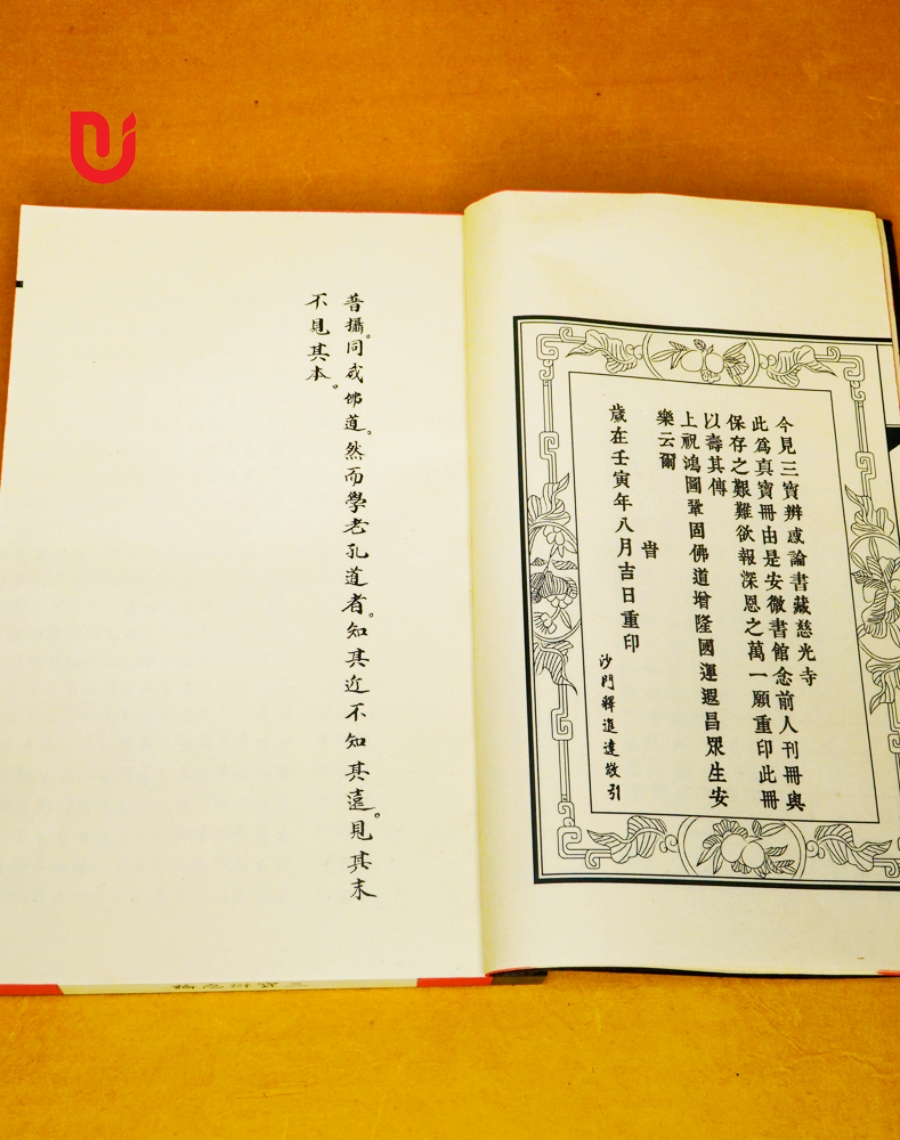 今見三寶辨惑論書藏慈光寺
此爲真寶冊由是安微書館念前人刊冊與
保存之艱難欲報深恩之萬一願重印此冊
以壽其傳
上祝鴻圖鞏固佛道增隆國運遐昌眾生安
樂云爾
旹
歲在壬寅年八月吉日重印
沙門釋進達敬引
普攝。同成佛道。然而學老孔道者。知其近不知其遠。見其末
不見其本。
三寶辨惑論